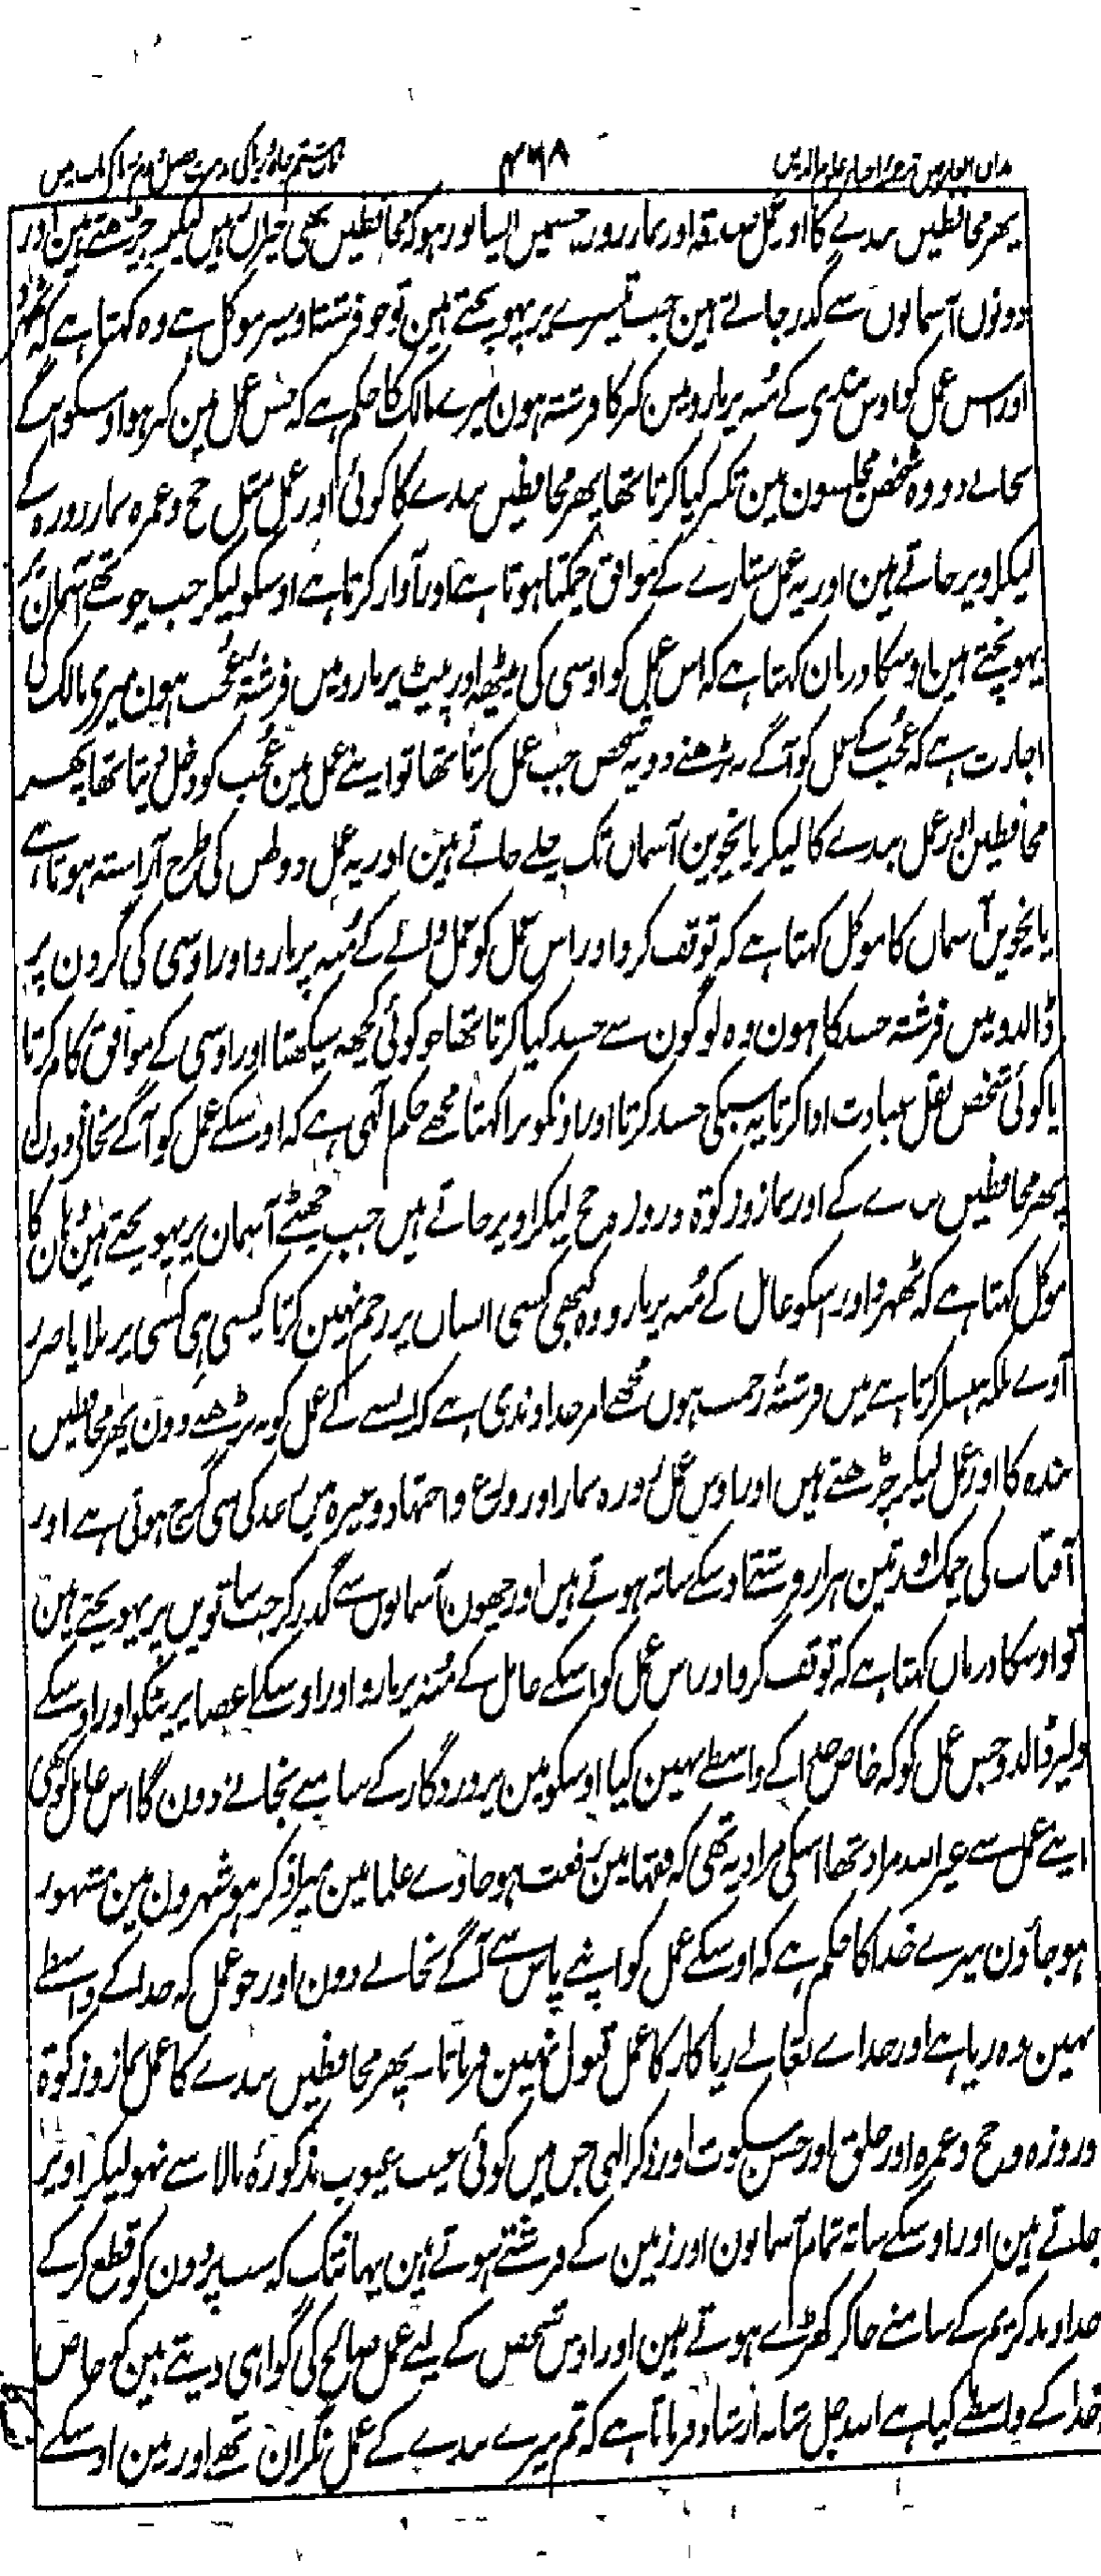 ۴۶۸
پھر محافظین بندے کا اور عمل صدقہ اور نماز روزہ جسمیں ایسا نور ہو کہ محافظین بھی حیران ہیں لیکر چڑھتے ہین اور
دونوں آسمانوں سے گذر جاتے ہین جب تیسرے پر پہونچتے ہین تو جو فرشتہ اوسپر موکل ہے وہ کہتا ہے کہ ٹھہرو
اور اس عمل کو اوس عمل کے مُنہ پر مارو مین کبر کا فرشتہ ہون میرے مالک کا حکم ہے کہ جس عمل مین کبر ہو اوسکو آگے
نجانے دو وہ شخص مجلسون مین تکبر کیا کرتا تھا پھر محافظین بندے کا کوئی اور عمل مثل حج و عمرہ نماز روزہ کے
لیکر اوپر جاتے ہین اور یہ عمل ستارے کے موافق چمکتا ہوتا ہے اور آواز کرتا ہے اوسکو لیکر جب چوتھے آسمان پر
پہونچتے ہین اوسکا دربان کہتا ہے کہ اس عمل کو اوسی کی پیٹھ اور پیٹ پر مارو میں فرشتہ عُجب ہون میری مالک کی
اجازت ہے کہ عُجب کے عمل کو آگے نہ بڑھنے دو یہ شخص جب عمل کرتا تھا تو اپنے عمل مین عُجب کو دخل دیتا تھا پھر
محافظین اور عمل بندے کا لیکر پانچوین آسمان تک چلے جاتے ہین اور یہ عمل دولھن کی طرح آراستہ ہوتا ہے
پانچوین آسمان کا موکل کہتا ہے کہ توقف کرو اور اس عمل کو عمل والے کے مُنہ پر مارو اور اوسی کی گردن پر
ڈالدو میں فرشتہ حسد کا ہون وہ لوگون سے حسد کیا کرتا تھا جو کوئی کچھ سیکھتا اور اوسی کے موافق کام کرتا
یا کوئی شخص نفل عبادت ادا کرتا یہ سبکی حسد کرتا اور اونکو برا کہتا مجھے حکم الٰہی ہے کہ اوسکے عمل کو آگے نجانے دون
پھر محافظین بندے کے اور نماز و زکوٰۃ و روزہ و حج لیکر اوپر جاتے ہیں جب چھٹے آسمان پر پہونچتے ہین وہان کا
موکل کہتا ہے کہ ٹھہرو اور اسکو عامل کے مُنہ پر مارو وہ کبھی کسی انسان پر رحم نہین کرتا کیسی ہی کسی پر بلا یا ضرر
آوے بلکہ ہنسا کرتا ہے میں فرشتۂ رحمت ہوں مجھے امر خداوندی ہے کہ ایسے کے عمل کو نہ بڑھنے دون پھر محافظین
بندہ کا اور عمل لیکر چڑھتے ہیں اور اوس عمل روزہ نماز اور ورع و اجتہاد وغیرہ میں رعد کی سی گرج ہوتی ہے اور
آفتاب کی چمک اور تین ہزار فرشتے اوسکے ساتہ ہوتے ہیں اور چھون آسمانوں سے گذر کر جب ساتویں پر پہونچتے ہین
تو اوسکا دربان کہتا ہے کہ توقف کرو اور اس عمل کو اسکے عامل کے مُنہ پر مارو اور اوسکے اعضا پر پٹکو اور اوسکے
دلپر ڈالدو جس عمل کو کہ خاص خدا کے واسطے نہین کیا اوسکو مین پروردگار کے سامنے نجانے دون گا اس عامل کو بھی
اپنے عمل سے غیر اللہ مراد تھا اسکی مراد یہ تھی کہ فقہا مین رفعت ہو جاوے علما مین میرا ذکر ہو شہرون مین مشہور
ہو جاؤن میرے خدا کا حکم ہے کہ اوسکے عمل کو اپنے پاس سے آگے نجانے دون اور جو عمل کہ خدا کے واسطے
نہین وہ ریا ہے اور خداے تعالے ریا کار کا عمل قبول نہین فرماتا پھر محافظین بندے کا عمل نماز و زکوٰۃ
و روزہ و حج و عمرہ اور خلق اور حسن سکوت اور ذکر الٰہی جس میں کوئی عیب عیوب مذکورۂ بالا سے نہو لیکر اوپر
جاتے ہین اور اوسکے ساتہ تمام آسمانون اور زمین کے فرشتے ہوتے ہین یہانتک کہ سب پردون کو قطع کرکے
خداوند کریم کے سامنے جاکر کھڑے ہوتے ہین اور اوس شخص کے لیے عمل صالح کی گواہی دیتے ہین کہ خاص
خدا کے واسطے کیا ہے اللہ جل شانہ ارشاد فرماتا ہے کہ تم میرے بندے کے عمل نگران تھے اور مین اوسکے